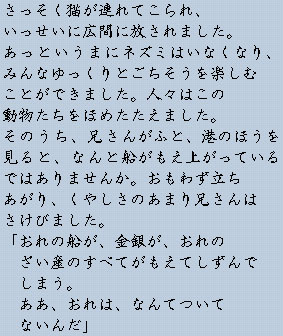 さっそく猫が連れてこられ、
いっせいに広間に放されました。
あっというまにネズミはいなくなり、
みんなゆっくりとごちそうを楽しむ
ことができました。人々はこの
動物たちをほめたたえました。
そのうち、兄さんがふと、港のほうを
見ると、なんと船がもえ上がっている
ではありませんか。おもわず立ち
あがり、くやしさのあまり兄さんは
さけびました。
「おれの船が、金銀が、おれの
ざい産のすべてがもえてしずんで
しまう。
ああ、おれは、なんてついて
ないんだ」